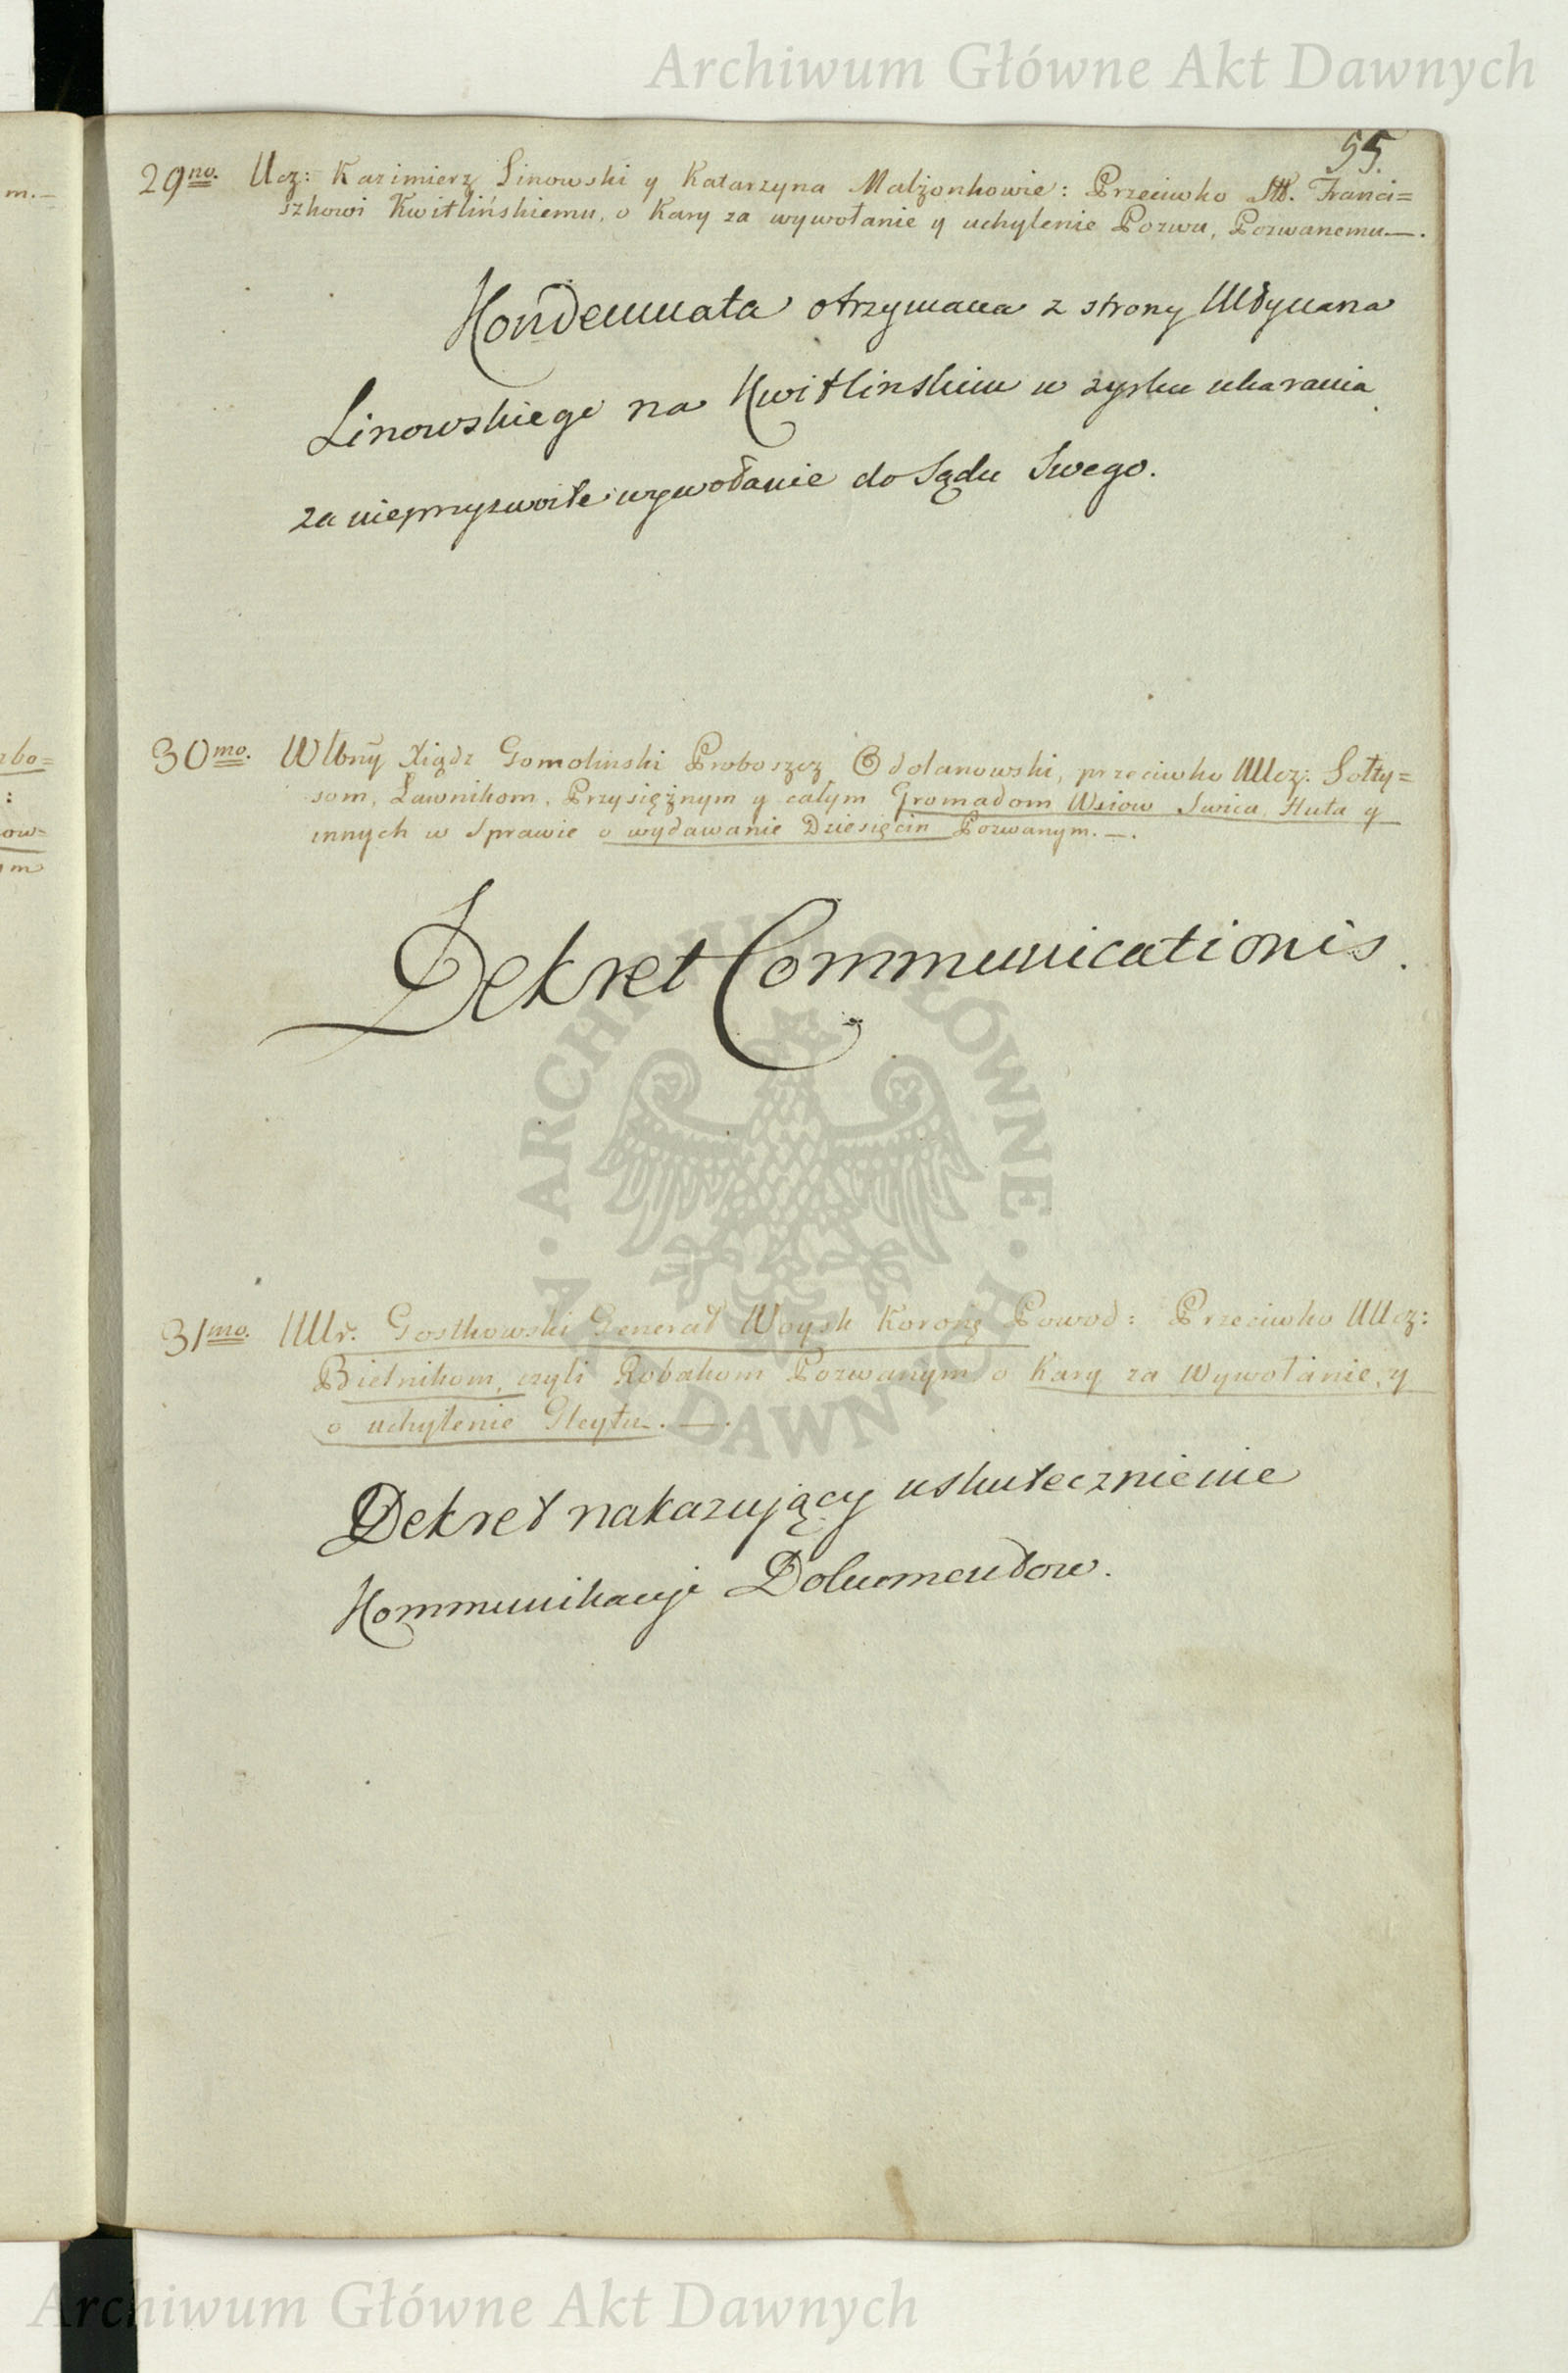 Archiwum Główne Akt Dawnych
55.
29no. Ucz: Kazimierz Linowski y Katarzyna Malżonkowie: Przeciwko Franci=
szkowi Kwitlińskiemu, o Kary za wywołanie y uchylenie Pozwu, Pozwanemu—.
Kondemnata otrzymana z strony Młynarza
Linowskiego na Kwitlinskim w zysku ukarania
za nieprzyzwoite wywołanie do Sądu Swego.
30mo. Wlbny Xiądz Gomolinski Proboszcz Odolanowski, przeciwko Ucz: Sołty=
som, Ławnikom, Przysiężnym y całym Gromadom Wsiow Swica, Huta y
innych w Sprawie o wydawanie Dziesięcin Pozwanym.—.
Dekret Communicationis.
31mo. Ur. Gostkowski Generał Woysk Koron Powod: Przeciwko Ucz:
Bielnikom, czyli Robakom Pozwanym o Kary za Wywołanie, y
o uchylenie Gleytu.—.
Dekret nakazujący uskutecznienie
Kommunikacyi Dokumentow.
ARCHIWUM GŁÓWNE AKT DAWNYCH
Archiwum Główne Akt Dawnych